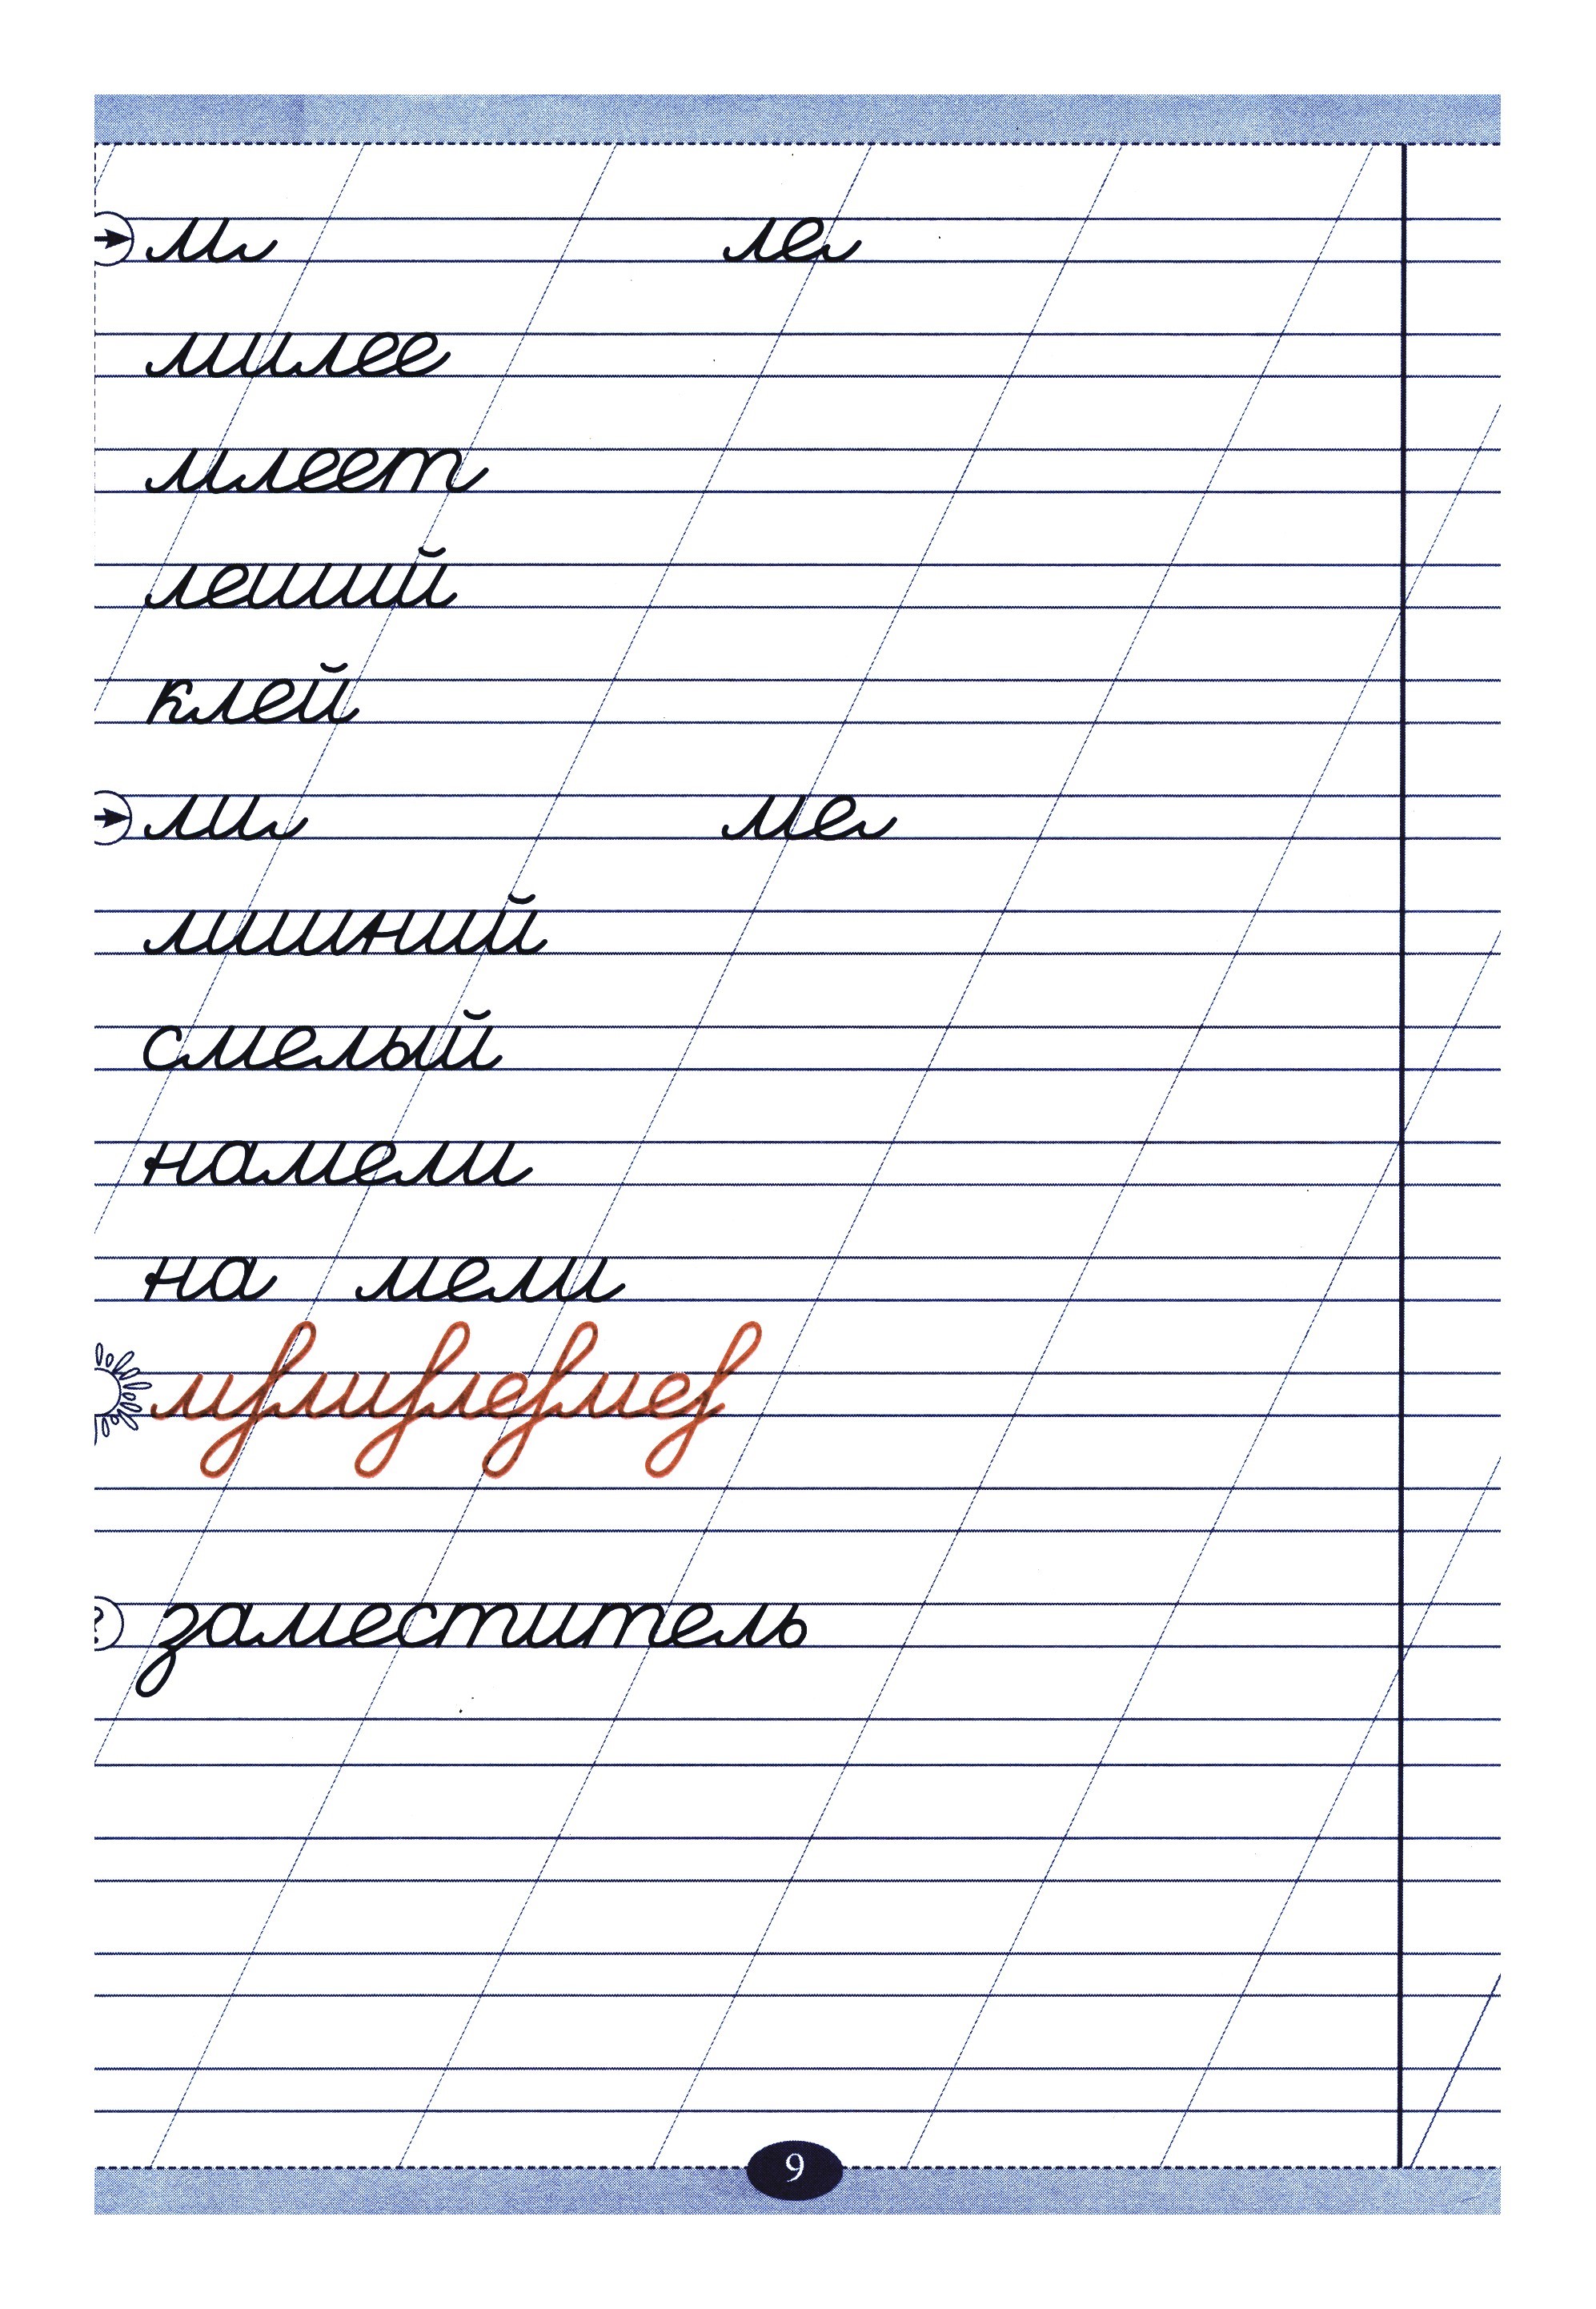 м ле
милее
млеет
леший
клей
ли ме
лишний
смелый
намели
на мели
заместитель
9